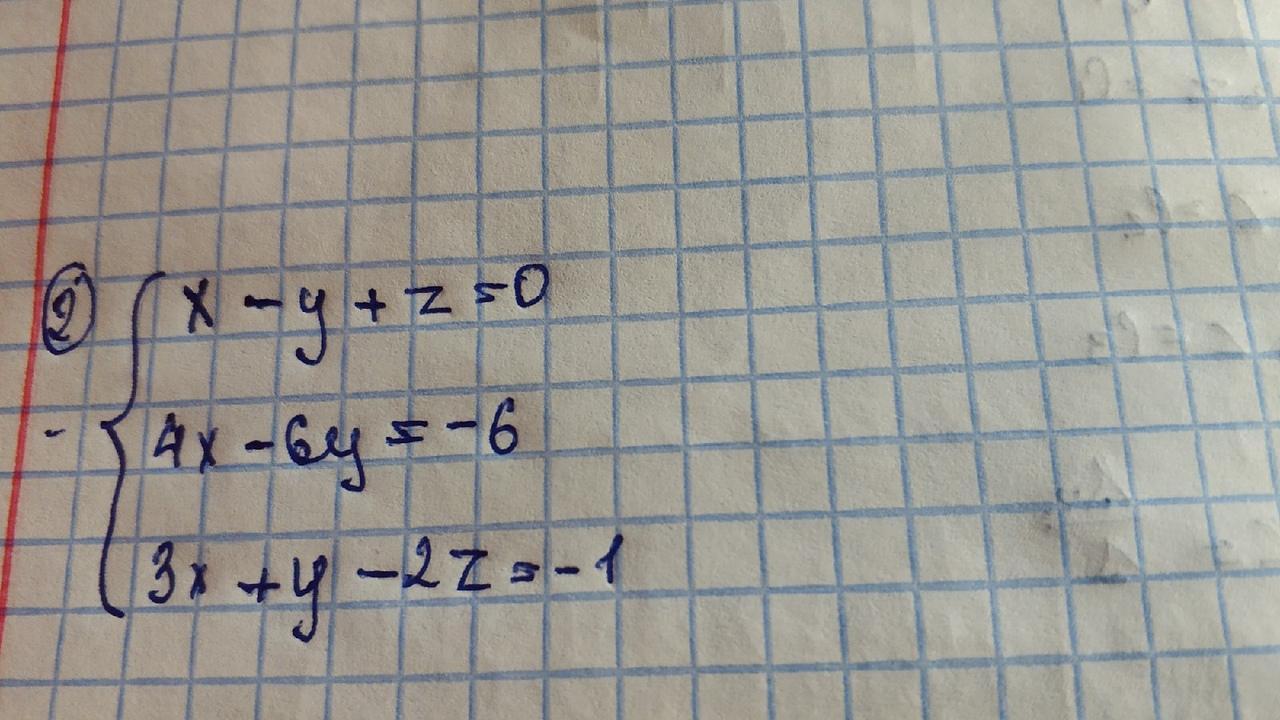 ② x - y + z = 0
- 4x - 6y = -6
3x + y - 2z = -1